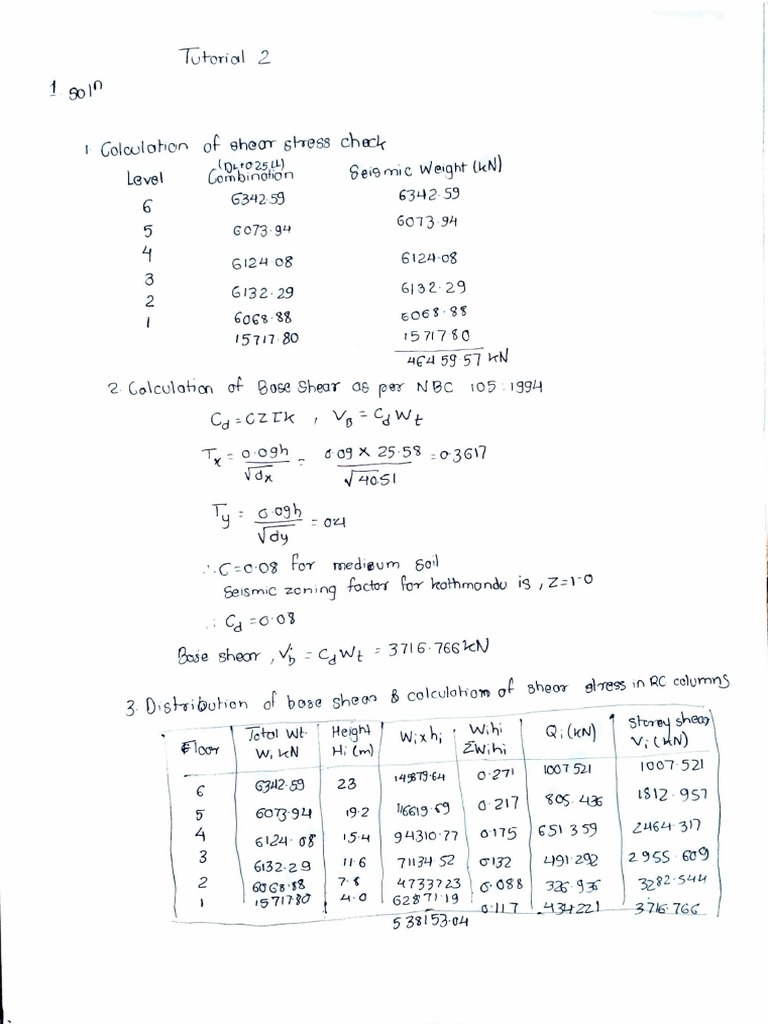 Tutorial 2
1. soln
1. Calculation of shear stress check
Level (DL+0.25LL) Combination Seismic Weight (kN)
6 6342.59 6342.59
5 6073.94 6073.94
4 6124.08 6124.08
3 6132.29 6132.29
2 6068.88 6068.88
1 15717.80 15717.80
46459.57 kN
2. Calculation of Base Shear as per NBC 105:1994
Cd = CZIK , VB = CdWt
Tx = 0.09h/√dx = 0.09 × 25.58/√40.51 = 0.3617
Ty = 0.09h/√dy = 0.4
∴ C = 0.08 for medium soil
Seismic zoning factor for kathmandu is, Z = 1.0
∴ Cd = 0.08
Base shear, Vb = CdWt = 3716.766 kN
3. Distribution of base shear & calculation of shear stress in RC columns
Floor Total Wt. Wi kN Height Hi (m) Wi x hi Wihi/ΣWihi Qi (kN) Storey shear Vi (kN)
6 6342.59 23 145879.64 0.271 1007.521 1007.521
5 6073.94 19.2 116619.69 0.217 805.436 1812.957
4 6124.08 15.4 94310.77 0.175 651.359 2464.317
3 6132.29 11.6 71134.52 0.132 491.292 2955.609
2 6068.88 7.8 47337.23 0.088 326.936 3282.544
1 15717.80 4.0 62871.19 0.117 434.221 3716.766
538153.04